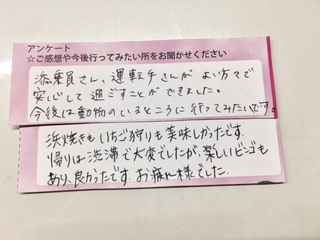 アンケート
☆ご感想や今後行ってみたい所をお聞かせください
添乗員さん、運転手さんがよい方々で
安心して過ごすことができました。
今後は動物のいるところに行ってみたいです。
浜焼きもいちご狩りも美味しかったです。
帰りは渋滞で大変でしたが、楽しいビンゴも
あり、良かったです。お疲れ様でした。